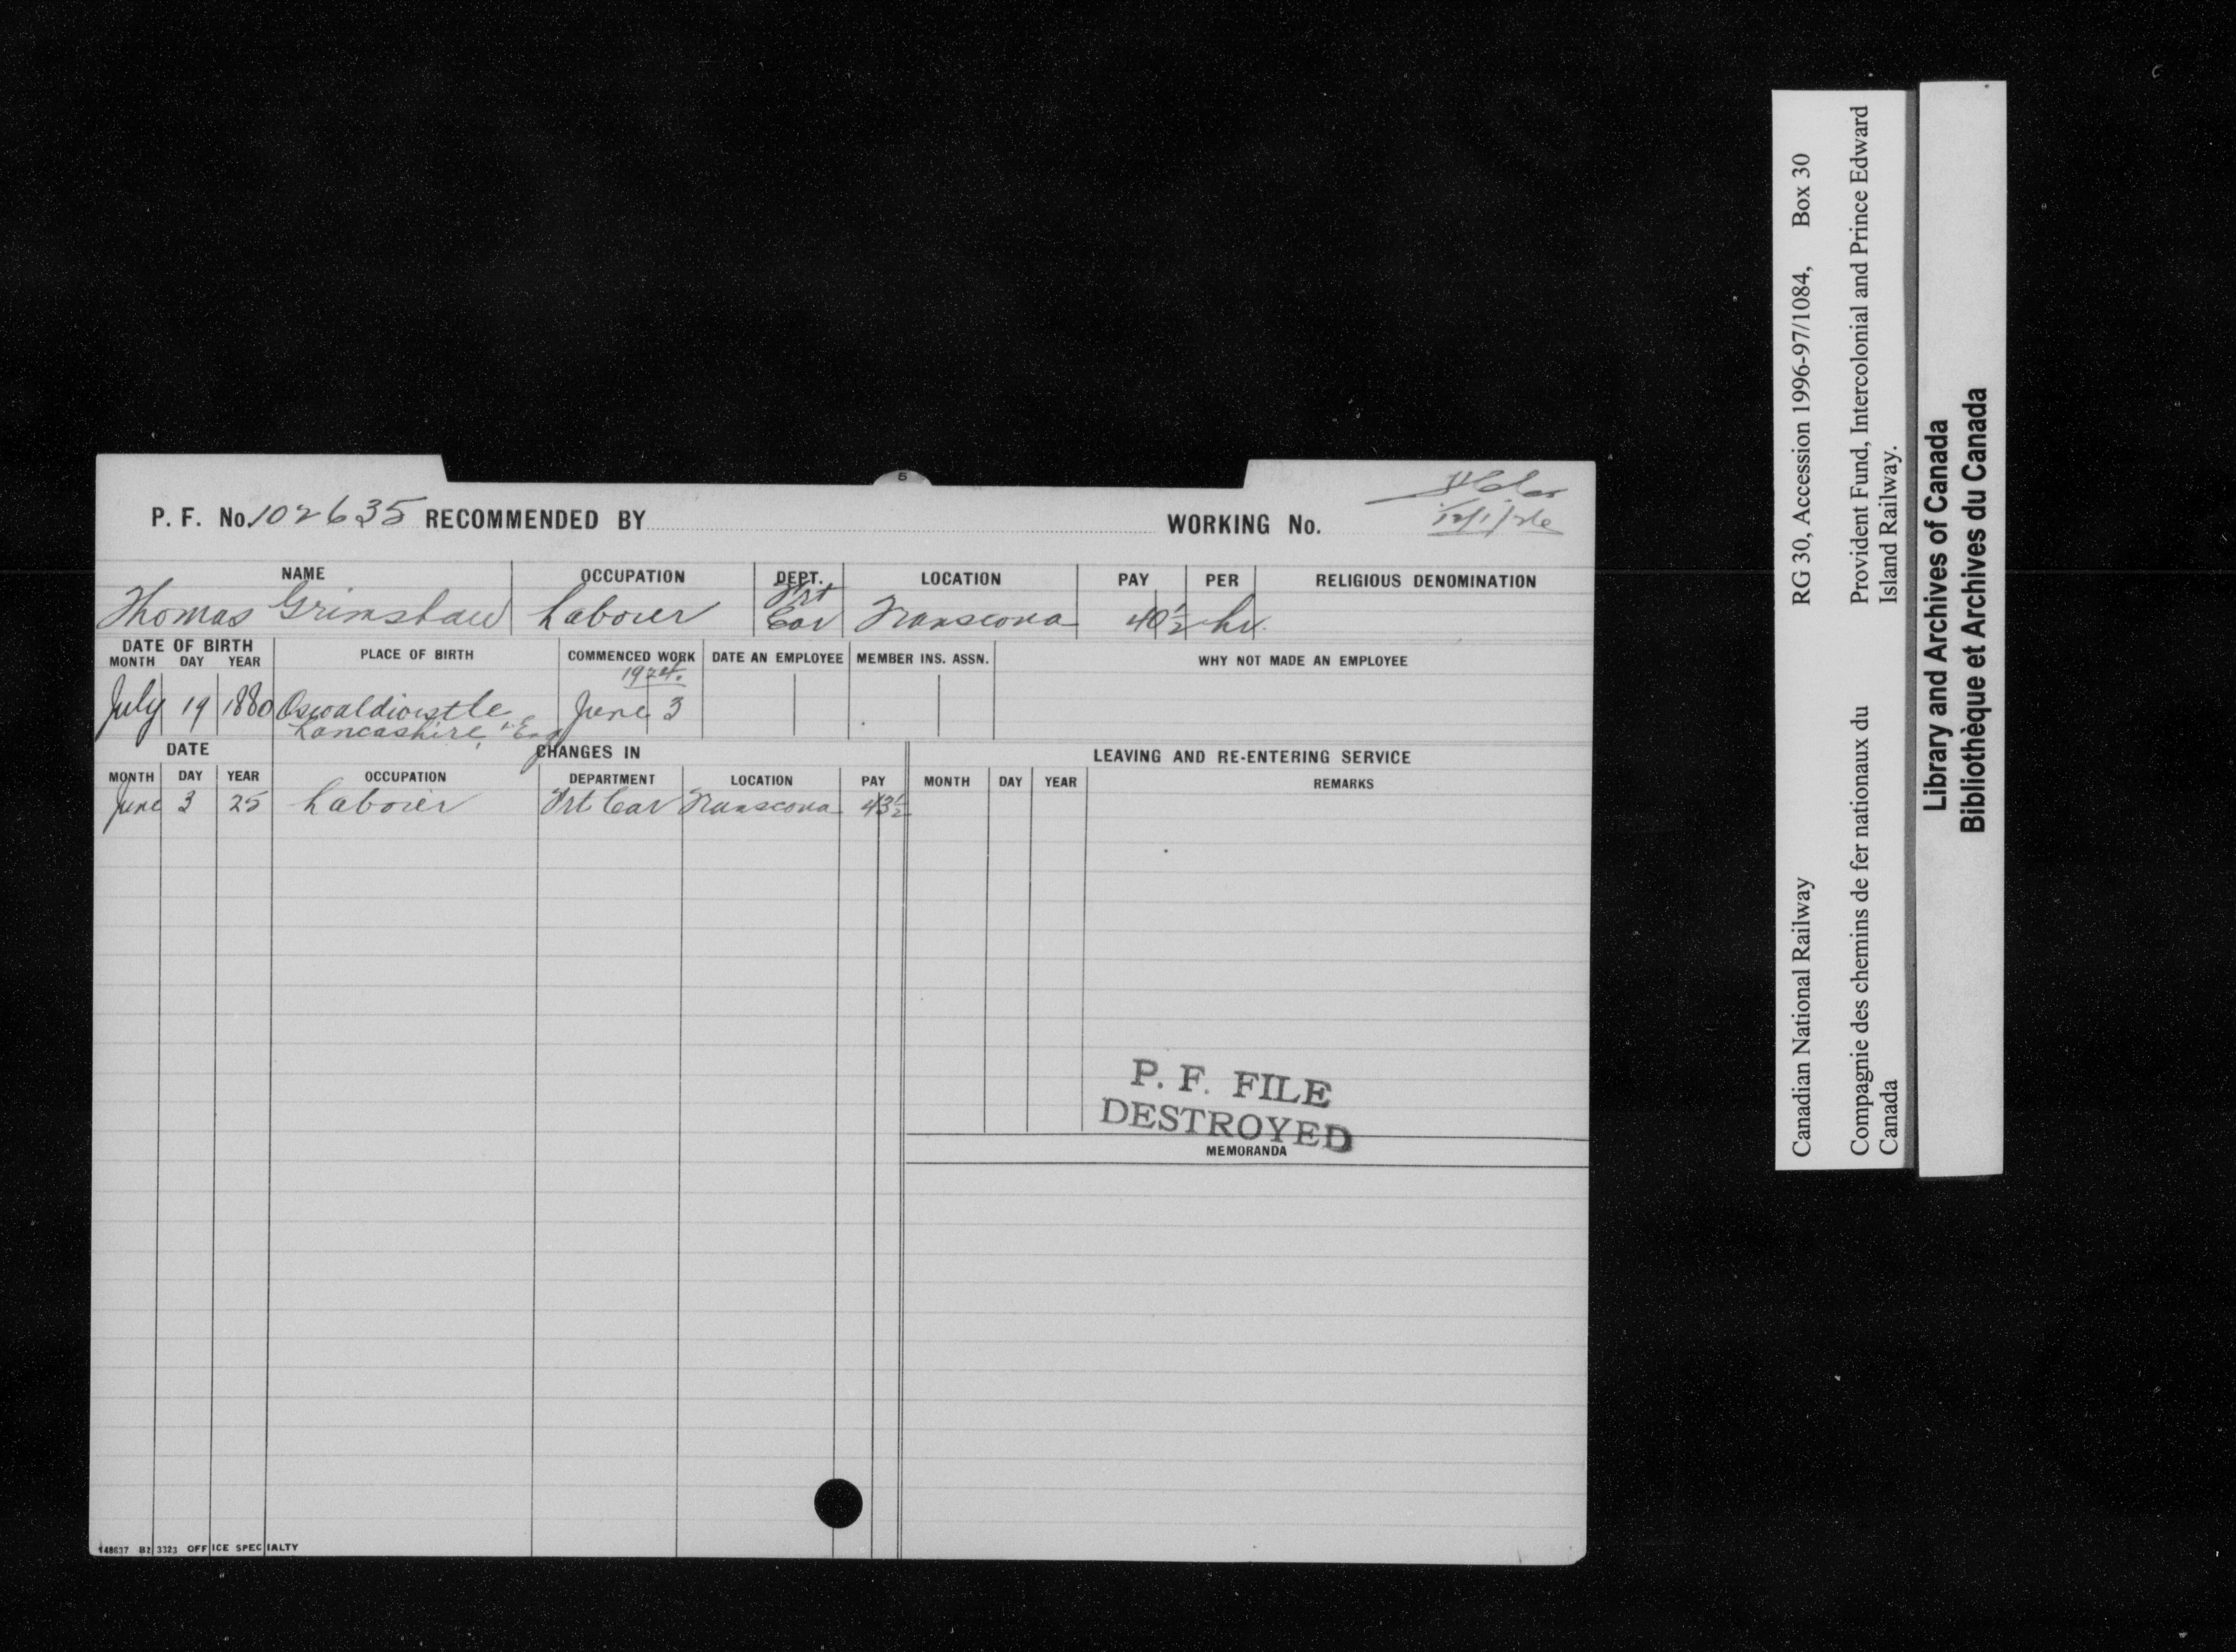 5
P. F. No. 102635 RECOMMENDED BY WORKING No.
NAME OCCUPATION DEPT. LOCATION PAY PER RELIGIOUS DENOMINATION
Thomas Grimshaw Laborer Frt Car Transcona 40 1/2 hr.
DATE OF BIRTH PLACE OF BIRTH COMMENCED WORK DATE AN EMPLOYEE MEMBER INS. ASSN. WHY NOT MADE AN EMPLOYEE
MONTH DAY YEAR
1924.
July 19 1880 Oswaldtwistle June 3
Lancashire, Eng
DATE CHANGES IN LEAVING AND RE-ENTERING SERVICE
MONTH DAY YEAR OCCUPATION DEPARTMENT LOCATION PAY MONTH DAY YEAR REMARKS
June 3 25 Laborer Frt Car Transcona 43 1/2
P. F. FILE
DESTROYED
MEMORANDA
148637 BZ 3323 OFFICE SPECIALTY
Canadian National Railway RG 30, Accession 1996-97/1084, Box 30
Compagnie des chemins de fer nationaux du Provident Fund, Intercolonial and Prince Edward
Canada Island Railway.
Library and Archives of Canada
Bibliothèque et Archives du Canada